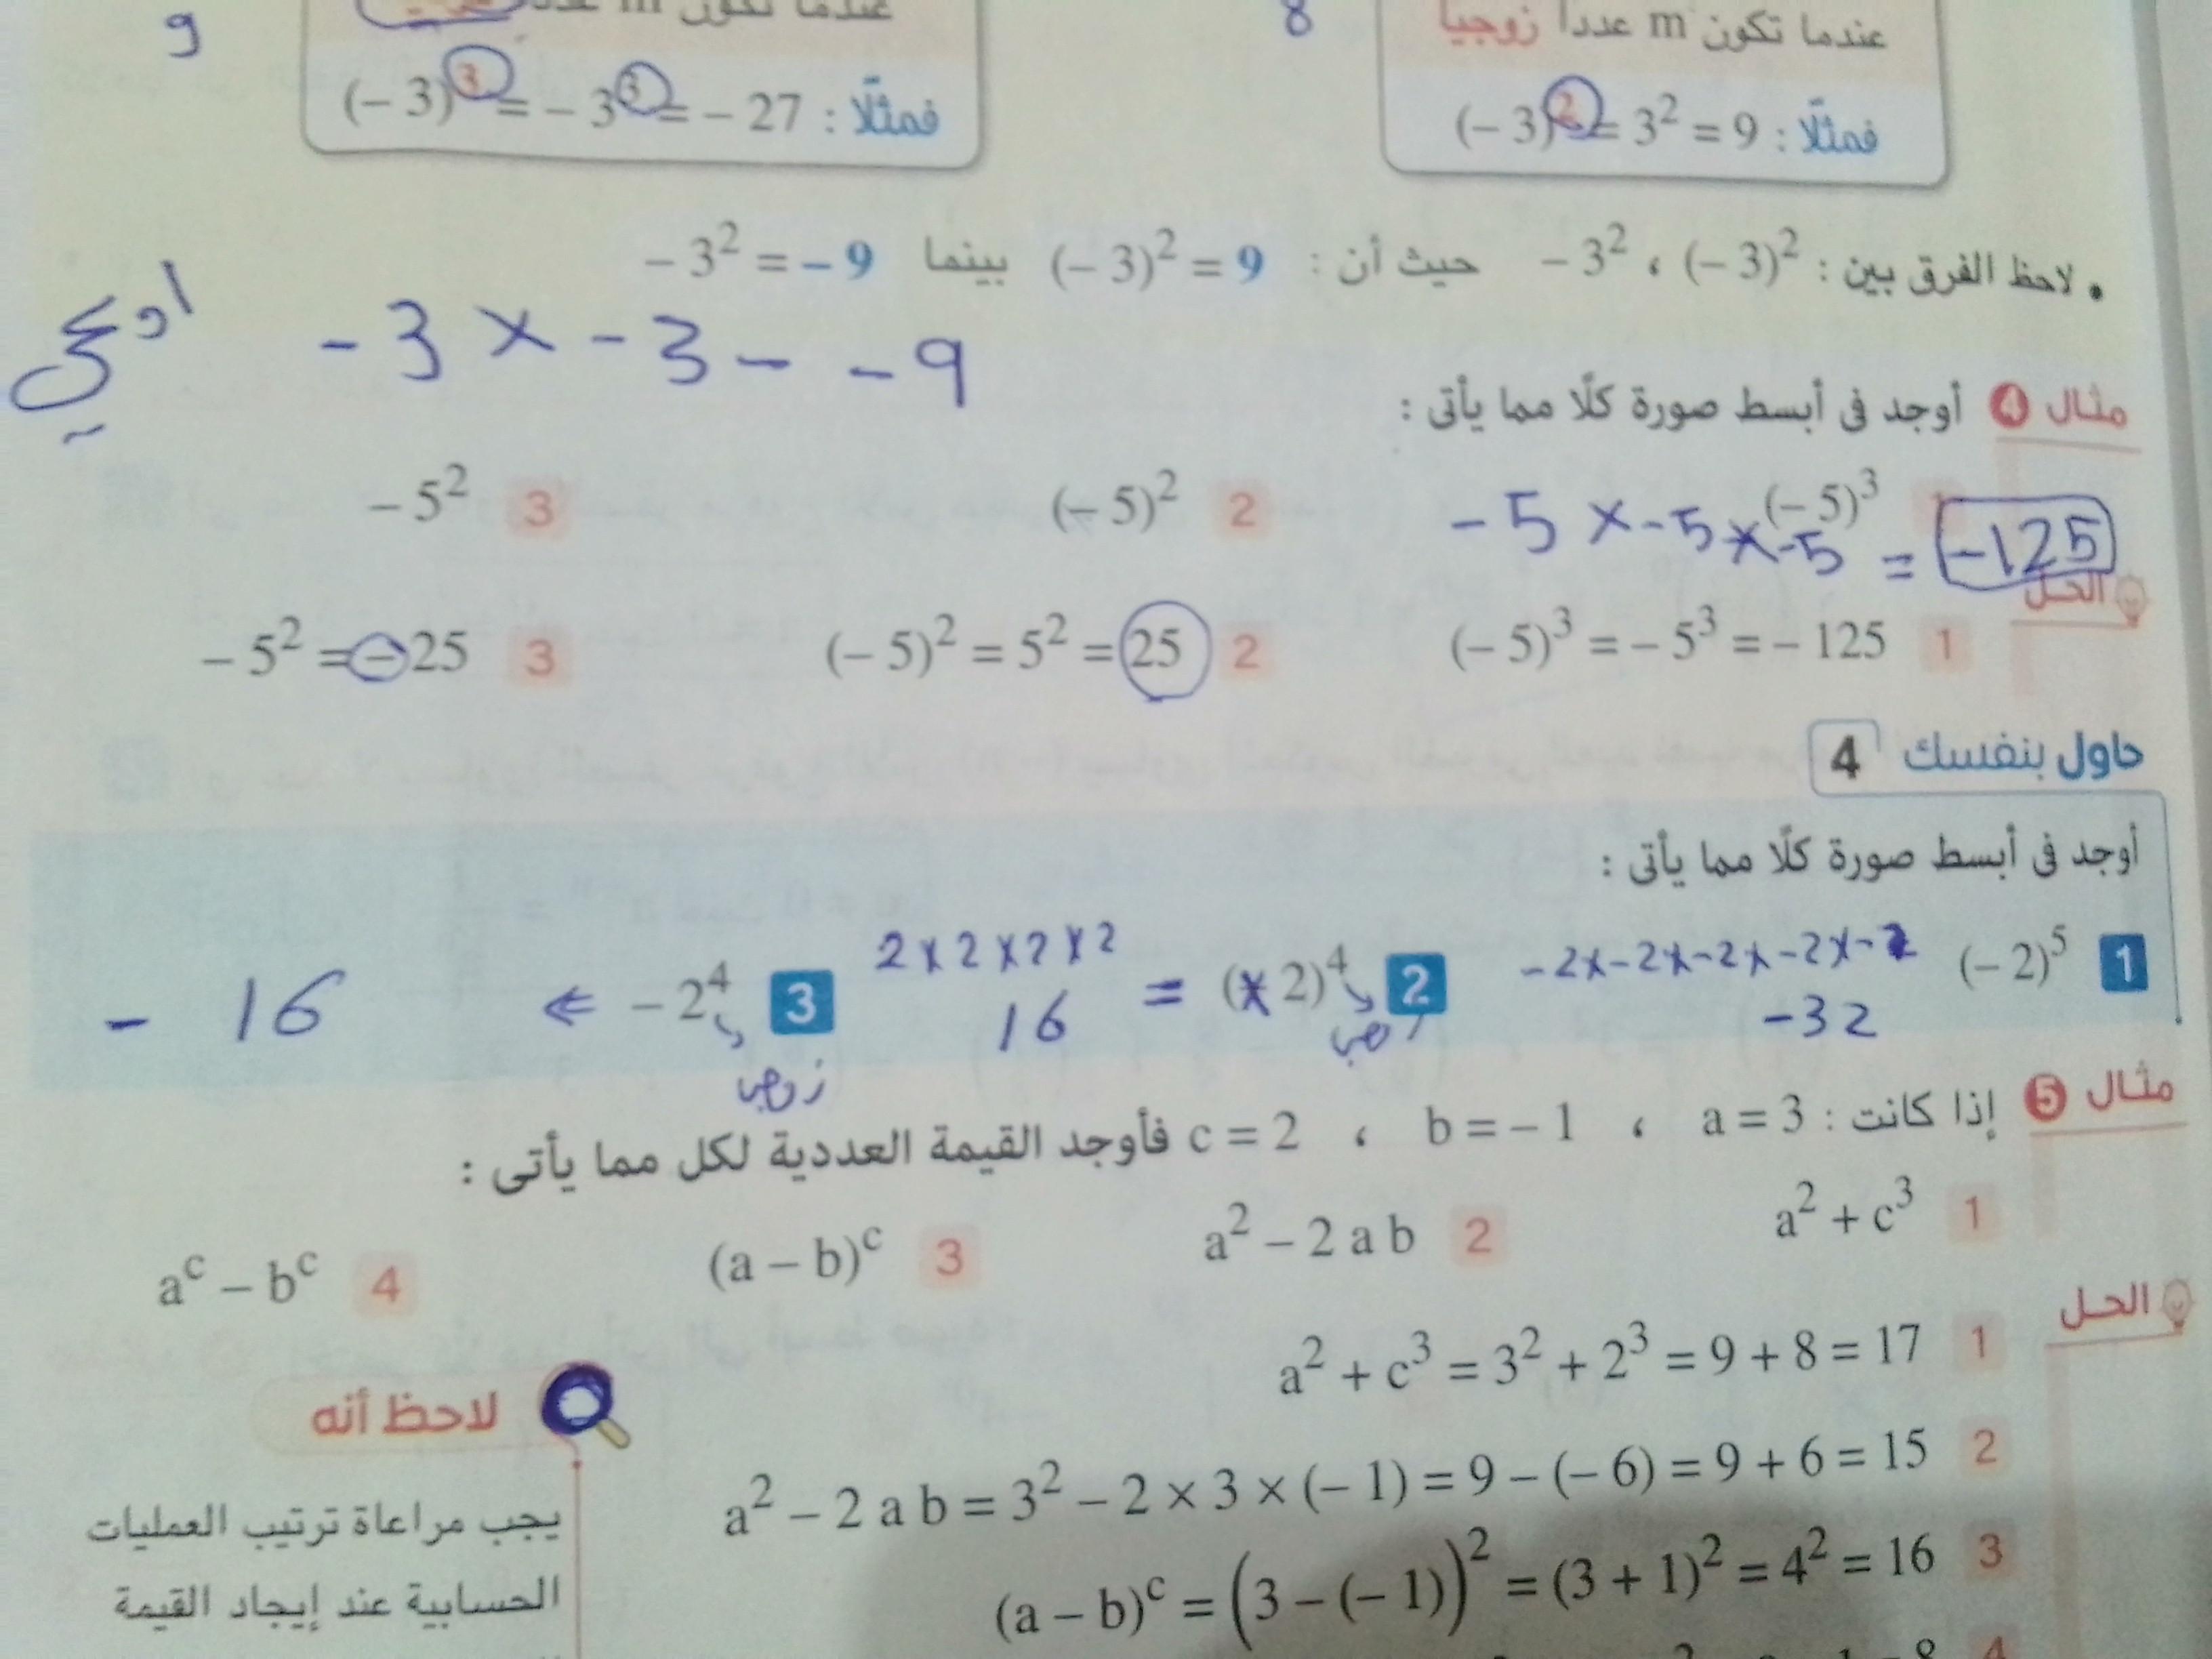 عندما تكون m عددًا زوجيًا
فمثلًا : (– 3)² = 3² = 9
8
عندما تكون m
فمثلًا : (– 3)³ = – 3³ = – 27
9
• لاحظ الفرق بين : (– 3)² ، – 3² حيث أن : (– 3)² = 9 بينما – 3² = – 9
- 3 × - 3 - - 9
مثال 4 أوجد فى أبسط صورة كلًا مما يأتى :
1 (– 5)³ 2 (– 5)² 3 – 5²
- 5 × - 5 × - 5 = -125
الحل
1 (– 5)³ = – 5³ = – 125 2 (– 5)² = 5² = 25 3 – 5² = – 25
حاول بنفسك 4
أوجد فى أبسط صورة كلًا مما يأتى :
1 (– 2)⁵ -2×-2×-2×-2×-2
-32
2 (× 2)⁴ = 2×2×2×2
16
3 – 2⁴ ⇐ - 16
زوجي
مثال 5 إذا كانت : a = 3 ، b = – 1 ، c = 2 فأوجد القيمة العددية لكل مما يأتى :
1 a² + c³ 2 a² – 2 a b 3 (a – b)ᶜ 4 aᶜ – bᶜ
الحل
1 a² + c³ = 3² + 2³ = 9 + 8 = 17
2 a² – 2 a b = 3² – 2 × 3 × (– 1) = 9 – (– 6) = 9 + 6 = 15
3 (a – b)ᶜ = (3 – (– 1))² = (3 + 1)² = 4² = 16
4
لاحظ أنه
يجب مراعاة ترتيب العمليات
الحسابية عند إيجاد القيمة